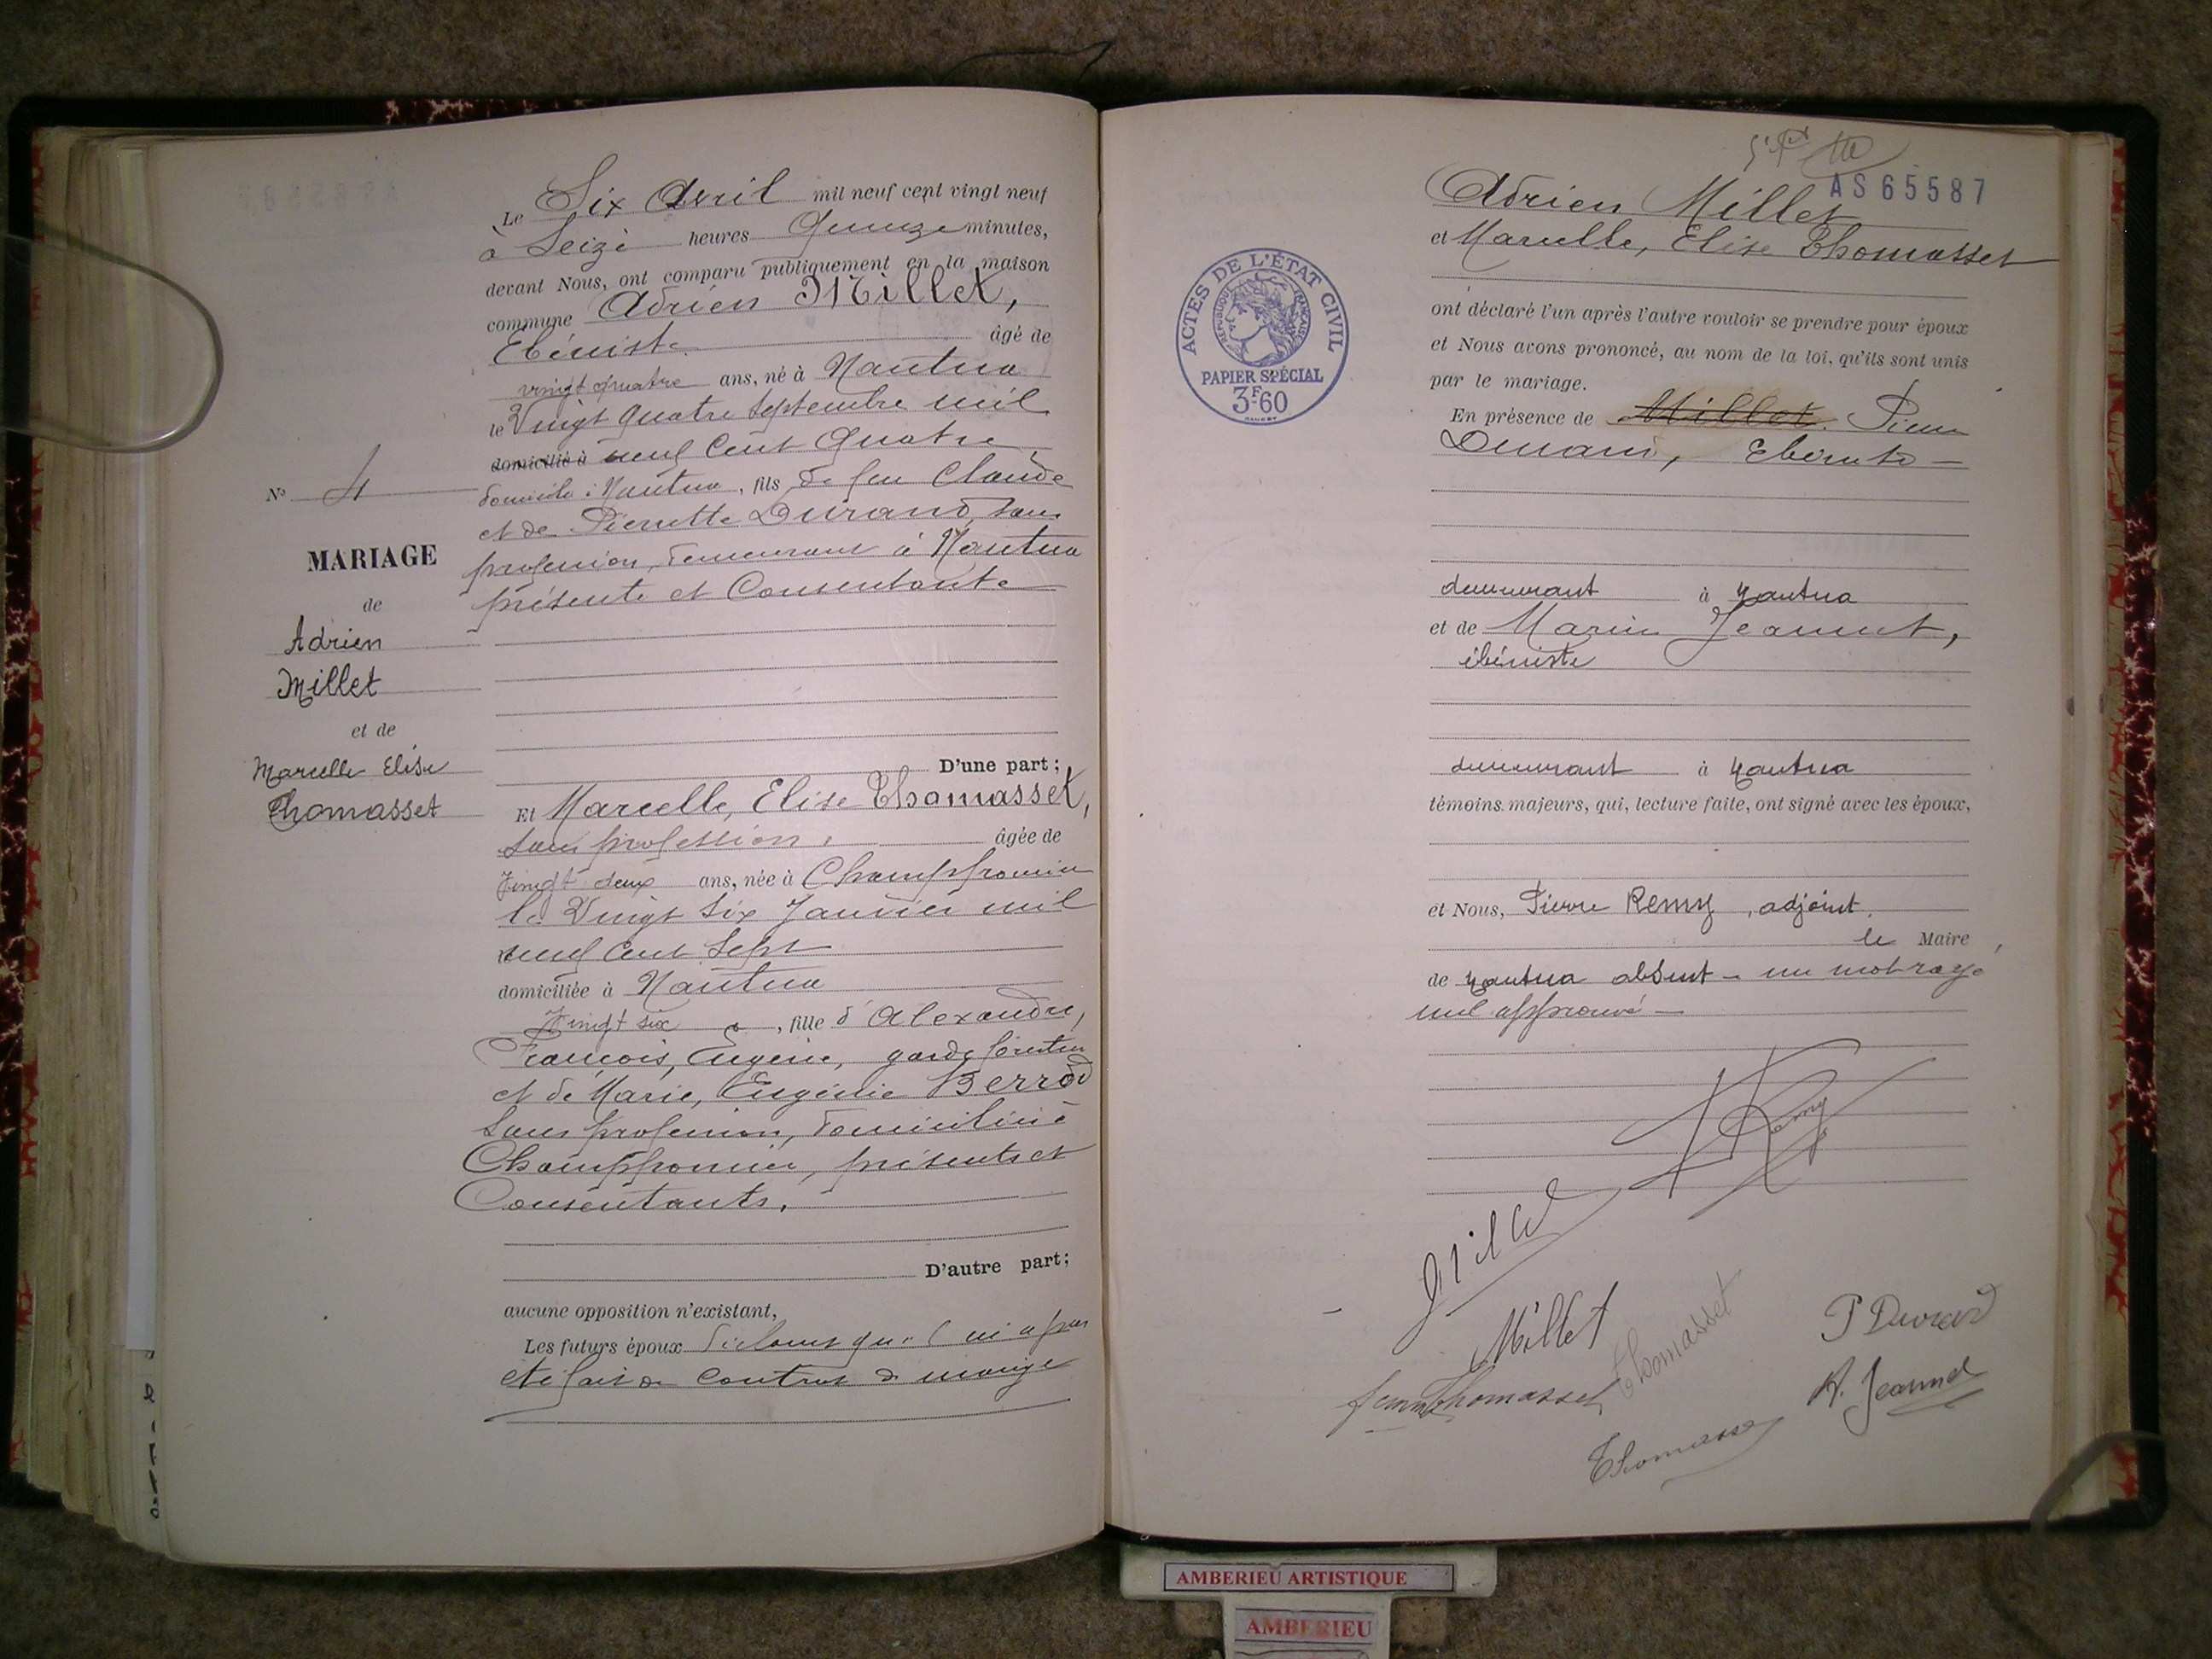 Le Six Avril mil neuf cent vingt neuf
à Seize heures Quinze minutes,
devant Nous, ont comparu publiquement en la maison
commune Adrien Millet,
Ebéniste âgé de
vingt quatre ans, né à Nantua
le Vingt quatre Septembre mil
domicilié à neuf Cent Quatre
domicilié à Nantua, fils de feu Claude
et de Pierrette Durand, sans
profession, demeurant à Nantua
présente et Consentante
D'une part;
Et Marcelle, Elise Thomasset,
sans profession, âgée de
vingt deux ans, née à Champfromier
le Vingt Six Janvier mil
neuf Cent Sept
domiciliée à Nantua
vingt six, fille d'Alexandre,
François, Eugène, garde forestier
et de Marie, Eugénie Berrod
sans profession, domiciliés à
Champfromier, présents et
Consentants.
D'autre part;
aucune opposition n'existant,
Les futurs époux déclarent qu'il n'a pas
été fait de contrat de mariage
N° 4
MARIAGE
de
Adrien
Millet
et de
Marcelle Elise
Thomasset
AS65587
Adrien Millet
et Marcelle, Elise Thomasset
ont déclaré l'un après l'autre vouloir se prendre pour époux
et Nous avons prononcé, au nom de la loi, qu'ils sont unis
par le mariage.
En présence de Millet. Pierre
Durand, Ebéniste
demeurant à Nantua
et de Marius Jeannet,
ébéniste
demeurant à Nantua
témoins majeurs, qui, lecture faite, ont signé avec les époux,
et Nous, Pierre Remy, adjoint,
le Maire,
de Nantua absent - un mot rayé
nul approuvé -
Remy
Millet
Millet
Thomasset
P Durand
femme Thomasset
Jeannet
Thomasset
ACTES DE L'ÉTAT CIVIL
RÉPUBLIQUE FRANÇAISE
PAPIER SPÉCIAL
3F60
AMBERIEU ARTISTIQUE
AMBERIEU